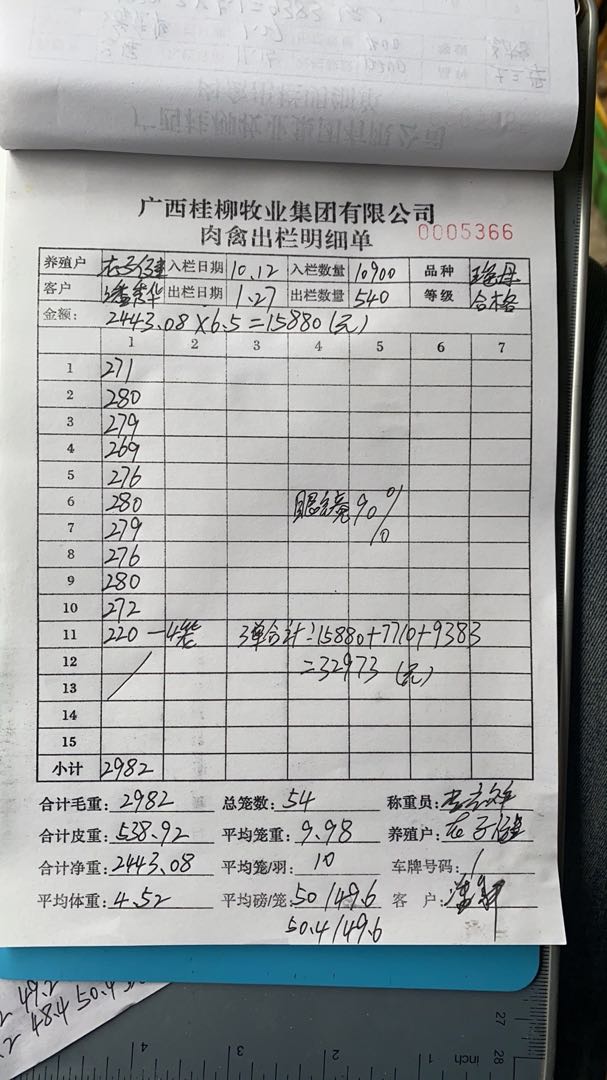 广西桂柳牧业集团有限公司
肉禽出栏明细单 0005366
养殖户 入栏日期 10.12 入栏数量 10900 品种 瑶丹
客户 出栏日期 1.27 出栏数量 540 等级 合格
金额: 2443.08×6.5=15880(元)
1 2 3 4 5 6 7
1 271
2 280
3 279
4 269
5 276
6 280 眼亮90%
7 279
8 276
9 280
10 272
11 220-4笼 3单合计:15880+7710+9383
12 =32973(元)
13
14
15
小计 2982
合计毛重: 2982 总笼数: 54 称重员:
合计皮重: 538.92 平均笼重: 9.98 养殖户:
合计净重: 2443.08 平均笼/羽: 10 车牌号码: /
平均体重: 4.52 平均磅/笼: 50/49.6 客 户:
50.4/49.6
49.2
48.4 50.4
4 3 2 1 inch
27
28